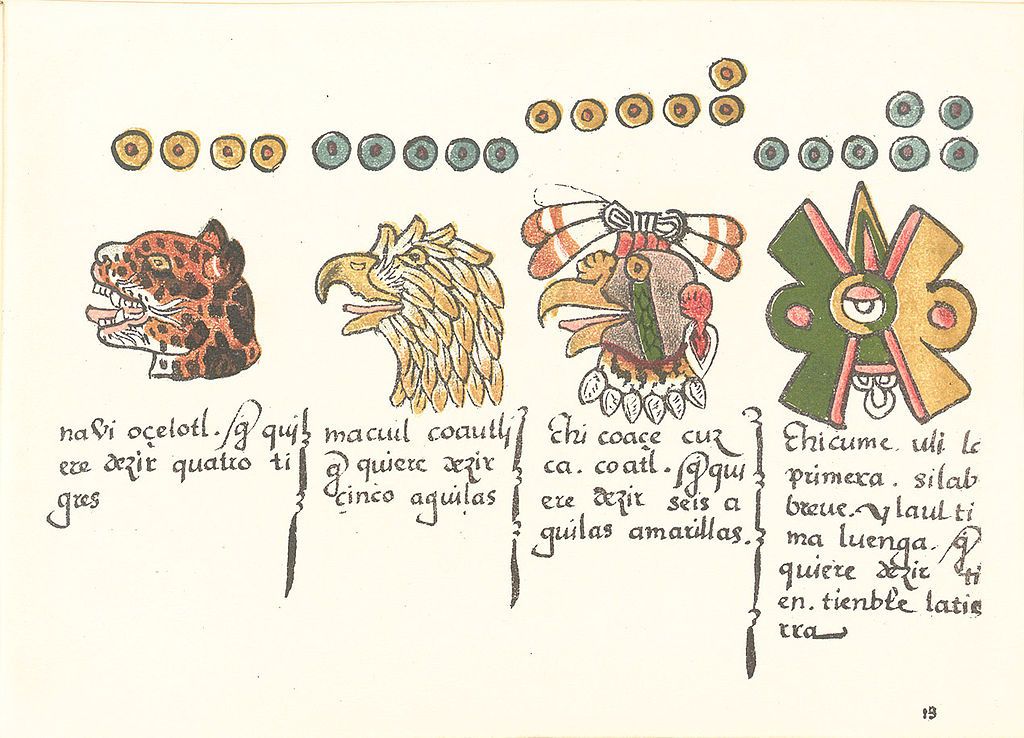 navi oçelotl. q̃ quí
ere dezir quatro ti
gres
macuil coautli
q̃ quiere dezir
cinco aguilas
chi coaçe cuz
ca. coatl. q̃ qui
ere dezir seis a
guilas amarillas.
chicume. uli la
primera. silab
breue. y laulti
ma luenga. q̃
quiere dezir ti
en. tienble latie
rra
13